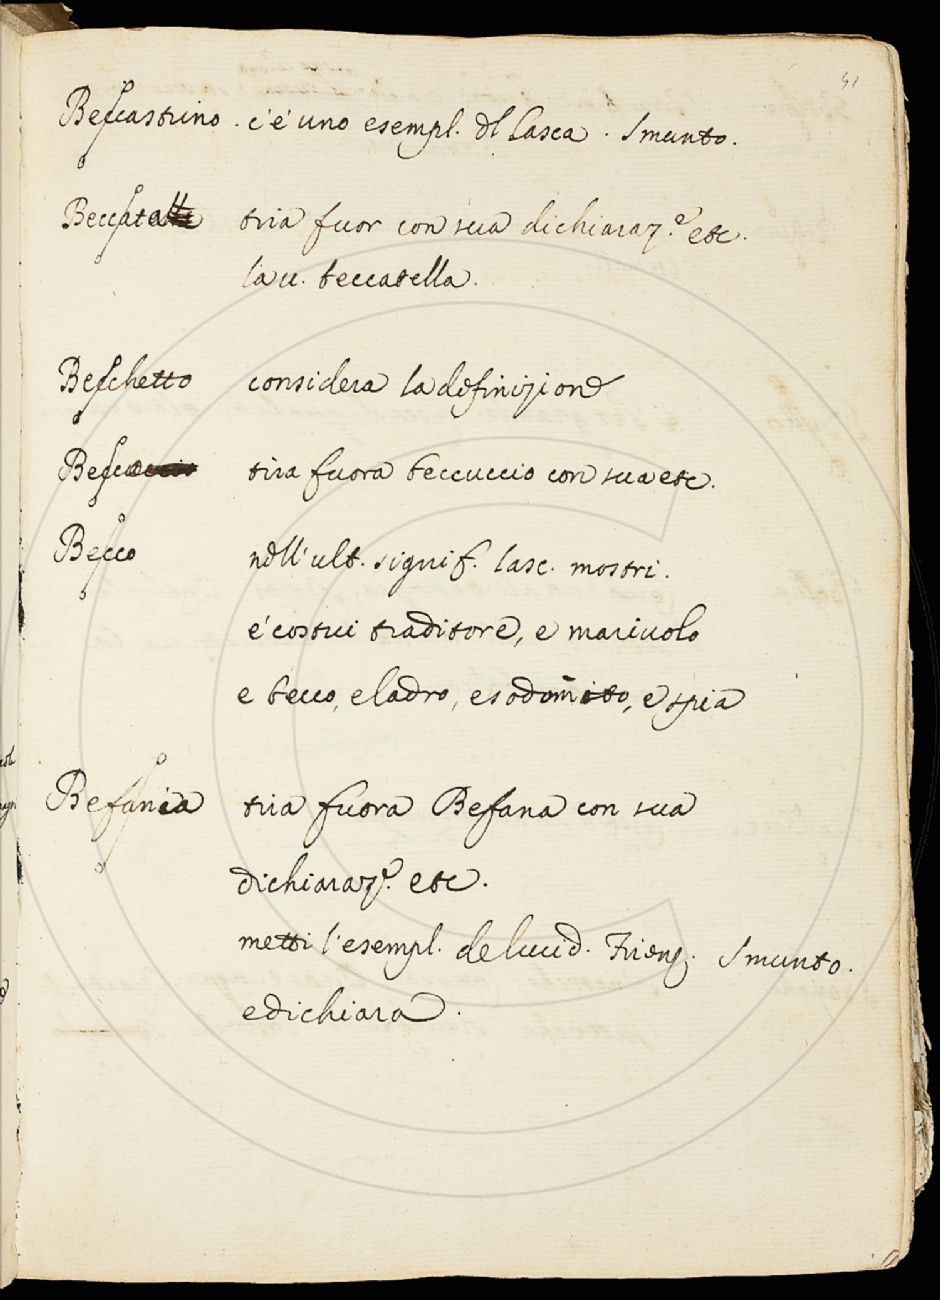 51
Beccastrino. c'è uno esempl. del Lasca. Smunto.
Beccat tira fuor con sua dichiaraz.e etc.
la v. beccatella.
Becchetto considera la definizione
Becc tira fuora beccuccio con sua etc.
Becco nell'ult. signif. Lasc. mostri.
è costui traditore, e mariuolo
e becco, e ladro, e sodomito, e spia
Befania tira fuora Befana con sua
dichiaraz.e etc.
metti l'esempl. de Lucid. Frienz. Smunto.
e dichiara.